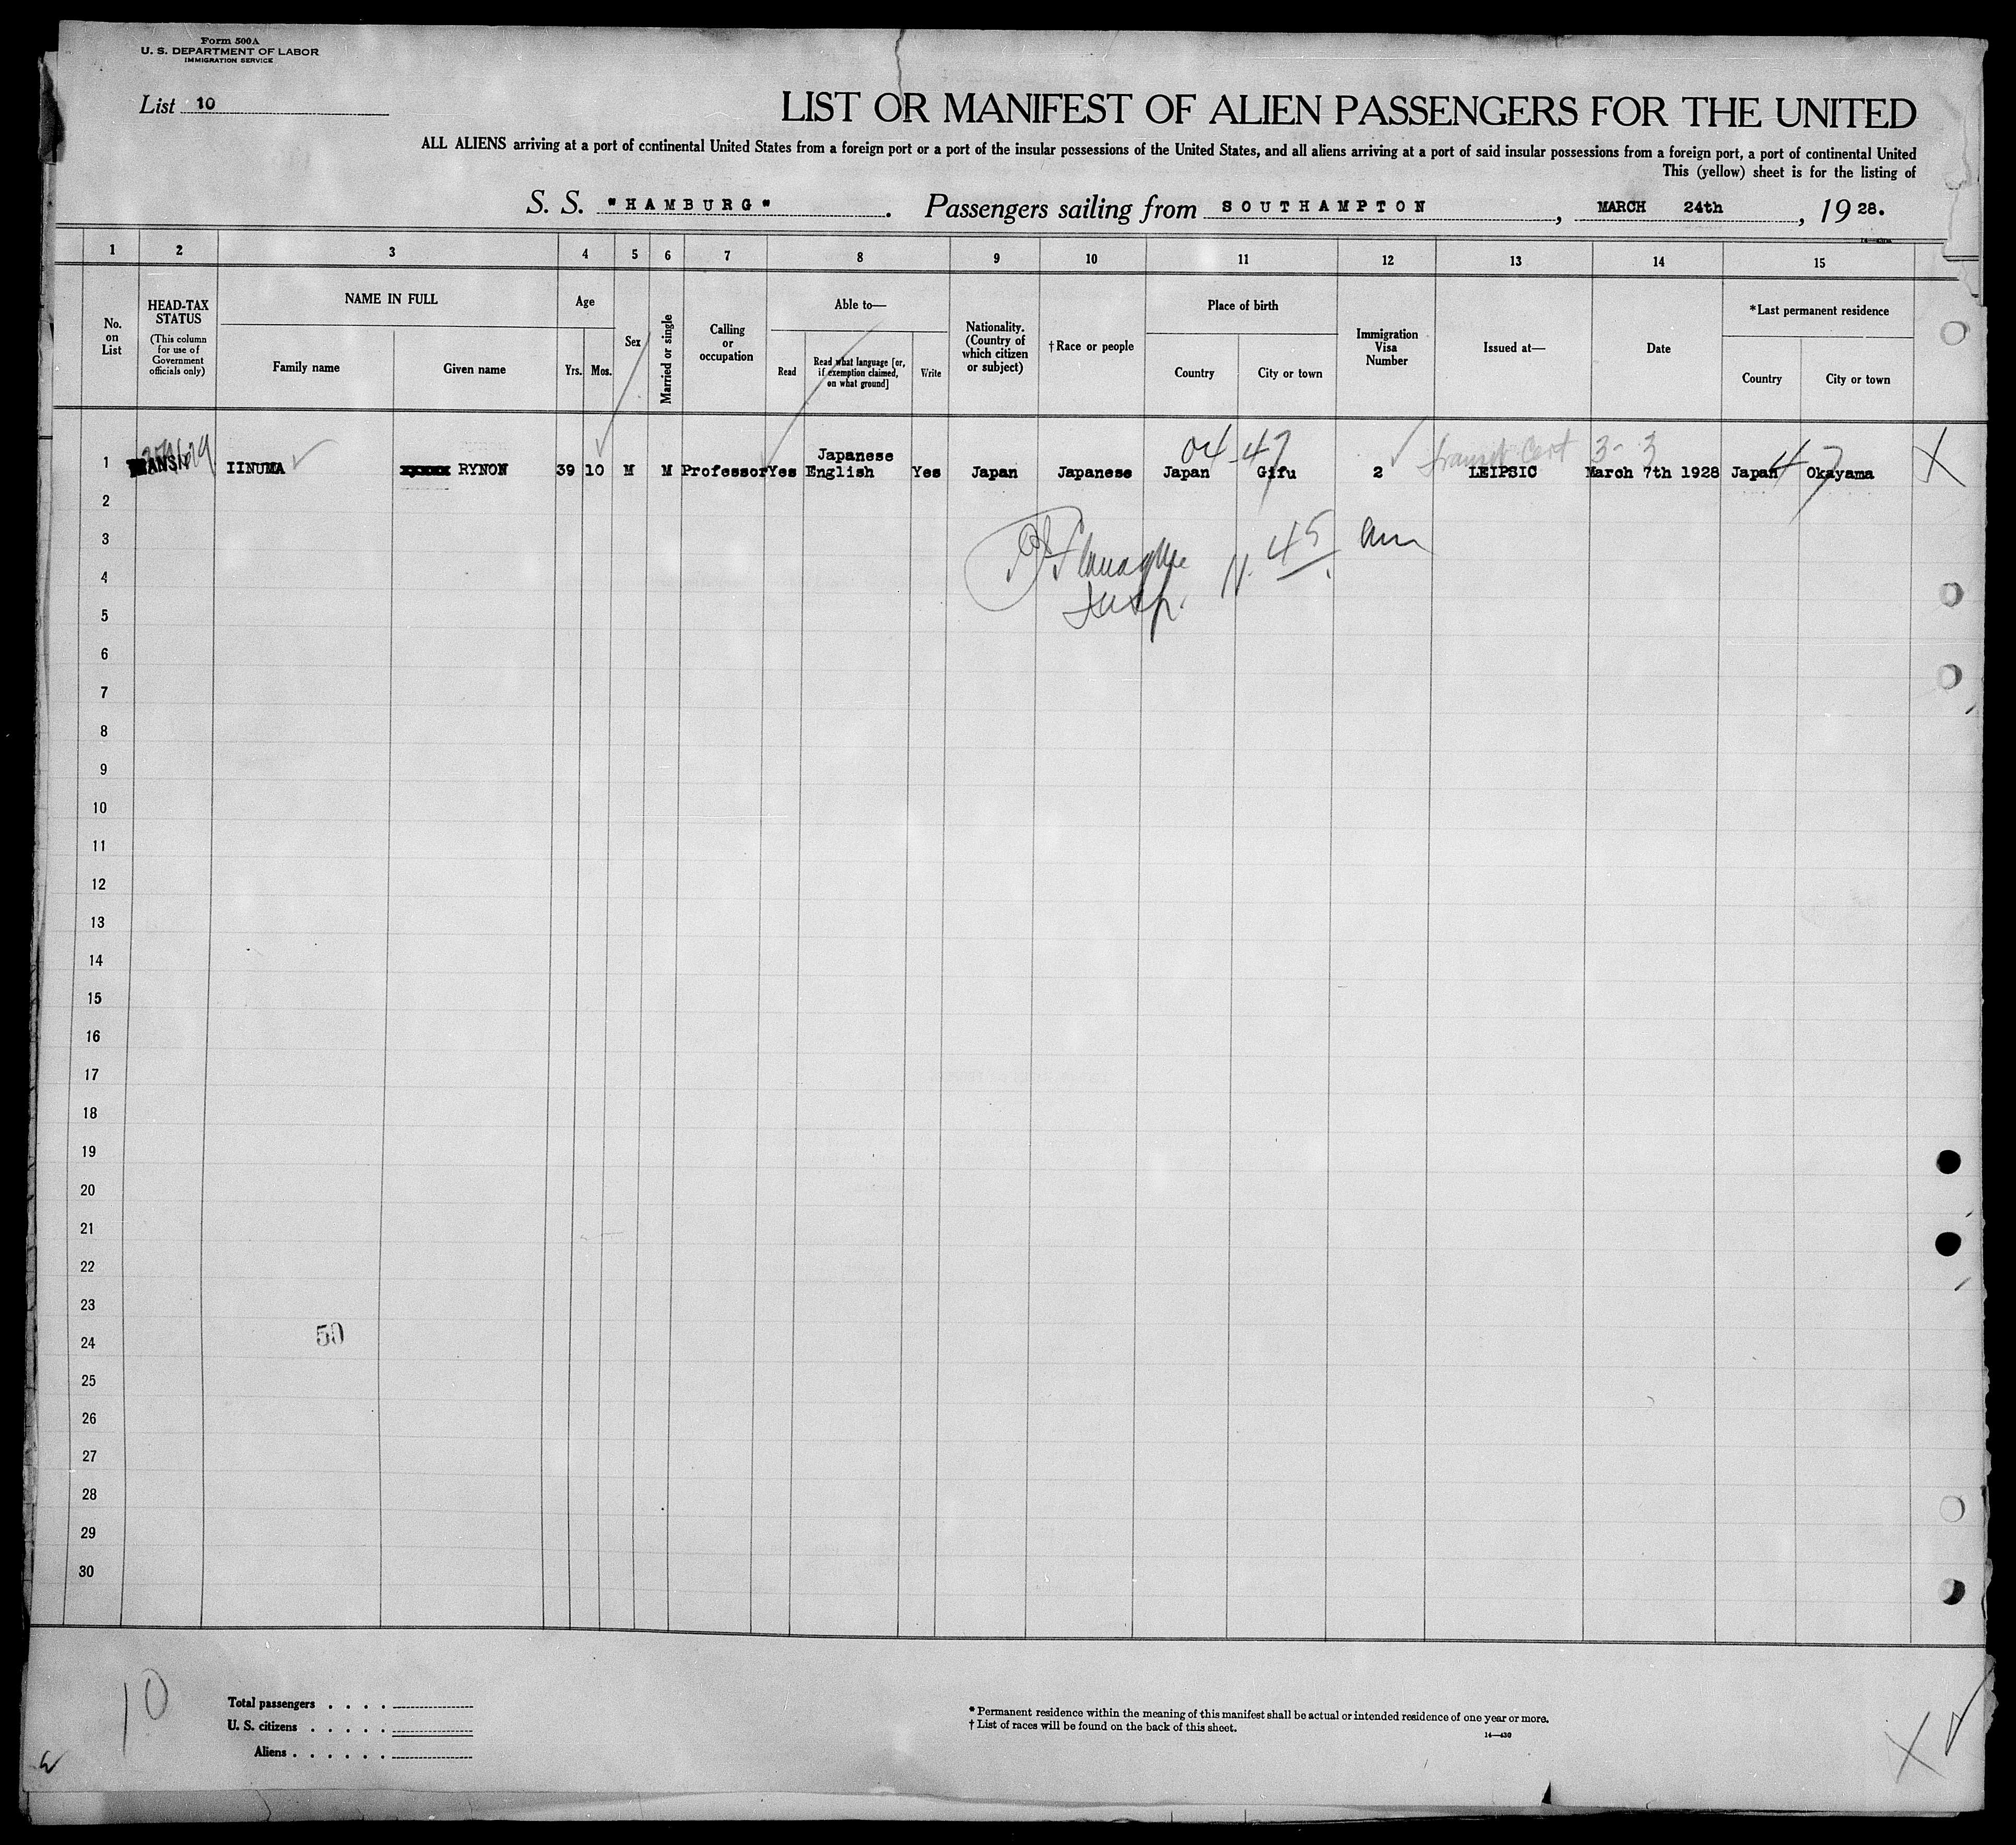 Form 500A
U. S. DEPARTMENT OF LABOR
IMMIGRATION SERVICE
List 10
LIST OR MANIFEST OF ALIEN PASSENGERS FOR THE UNITED
ALL ALIENS arriving at a port of continental United States from a foreign port or a port of the insular possessions of the United States, and all aliens arriving at a port of said insular possessions from a foreign port, a port of continental United
This (yellow) sheet is for the listing of
S. S. "HAMBURG". Passengers sailing from SOUTHAMPTON, MARCH 24th, 1928.
1 2 3 4 5 6 7 8 9 10 11 12 13 14 15
No. on List
HEAD-TAX STATUS
(This column for use of Government officials only)
NAME IN FULL
Family name
Given name
Age
Yrs.
Mos.
Sex
Married or single
Calling or occupation
Able to—
Read
Read what language [or, if exemption claimed, on what ground]
Write
Nationality. (Country of which citizen or subject)
†Race or people
Place of birth
Country
City or town
Immigration Visa Number
Issued at—
Date
*Last permanent residence
Country
City or town
04-47
Transit Cert 3-3
47
X
1 IINUMA RYNON 39 10 M M Professor Yes Japanese English Yes Japan Japanese Japan Gifu 2 LEIPSIC March 7th 1928 Japan Okayama
2
3
N. 45
4
Insp.
5
6
7
8
9
10
11
12
13
14
15
16
17
18
19
20
21
22
23
24
50
25
26
27
28
29
30
10
Total passengers . . . .
U. S. citizens . . . . .
Aliens . . . . . .
* Permanent residence within the meaning of this manifest shall be actual or intended residence of one year or more.
† List of races will be found on the back of this sheet.
14—430
X